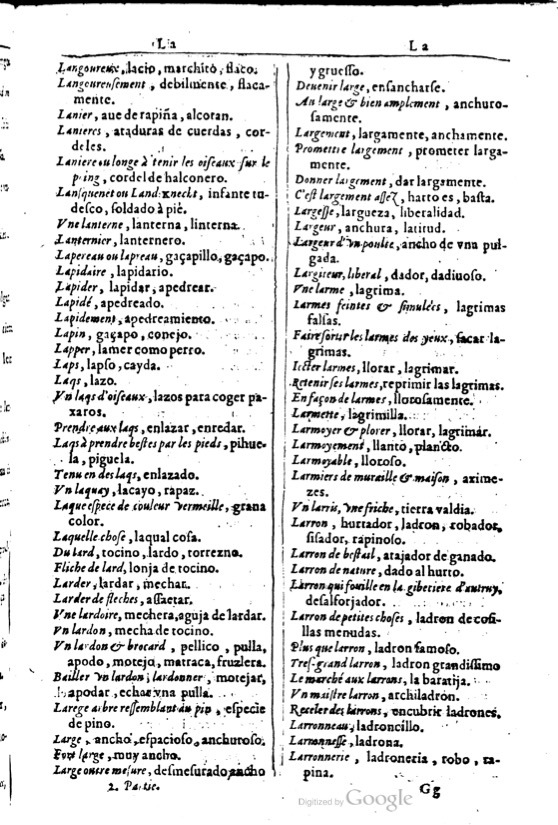 La
Langoureux, lacio, marchito, flaco.
Langoureusement, debilmente, flaca-
mente.
Lanier, aue de rapiña, alcotan.
Lanieres, ataduras de cuerdas, cor-
deles.
Laniere ou longe à tenir les oiseaux sur le
poing, cordel de halconero.
Lansquenet ou Landsknecht, infante tu-
desco, soldado à piè.
Vne lanterne, lanterna, linterna.
Lanternier, lanternero.
Lapereau ou lapreau, gaçapillo, gaçapo.
Lapidaire, lapidario.
Lapider, lapidar, apedrear.
Lapidé, apedreado.
Lapidement, apedreamiento.
Lapin, gaçapo, conejo.
Lapper, lamer como perro.
Laps, lapso, cayda.
Laqs, lazo.
Vn laqs d'oiseaux, lazos para coger pa-
xaros.
Prendre aux laqs, enlazar, enredar.
Laqs à prendre bestes par les pieds, pihue-
la, piguela.
Tenu en des laqs, enlazado.
Vn laquay, lacayo, rapaz.
Laque espece de couleur vermeille, grana
color.
Laquelle chose, laqual cosa.
Du lard, tocino, lardo, torrezno.
Fliche de lard, lonja de tocino.
Larder, lardar, mechar.
Larder de fleches, assaetar.
Vne lardoire, mechera, aguja de lardar.
Vn lardon, mecha de tocino.
Vn lardon & brocard, pellico, pulla,
apodo, motejo, matraca, fruzlera.
Bailler vn lardon, lardonner, motejar,
apodar, echar vna pulla.
Large arbre ressemblant au pin, especie
de pino.
Large, ancho, espacioso, anchuroso.
Fort large, muy ancho.
Large outre mesure, desmesurado ancho
2. Partie.
La
y gruesso.
Deuenir large, ensancharse.
Au large & bien amplement, anchuro-
samente.
Largement, largamente, anchamente.
Promettre largement, prometer larga-
mente.
Donner largement, dar largamente.
C'est largement assez, harto es, basta.
Largesse, largueza, liberalidad.
Largeur, anchura, latitud.
Largeur d'vn poulce, ancho de vna pul-
gada.
Largiteur, liberal, dador, dadiuoso.
Vne larme, lagrima.
Larmes feintes & simulées, lagrimas
falsas.
Faire sortir les larmes des yeux, sacar la-
grimas.
Ietter larmes, llorar, lagrimar.
Retenir ses larmes, reprimir las lagrimas.
En façon de larmes, llorosamente.
Larmette, lagrimilla.
Larmoyer & plorer, llorar, lagrimar.
Larmoyement, llanto, plancto.
Larmoyable, lloroso.
Larmiers de muraille & maison, axime-
zes.
Vn larris, vne friche, tierra valdia.
Larron, hurtador, ladron, robador,
sisador, rapinoso.
Larron de bestail, atajador de ganado.
Larron de nature, dado al hurto.
Larron qui fouille en la gibeciere d'autruy,
desalforjador.
Larron de petites choses, ladron de cosi-
llas menudas.
Plus que larron, ladron famoso.
Tres-grand larron, ladron grandissimo
Le marché aux larrons, la baratija.
Vn maistre larron, archiladron.
Receler des larrons, encubrir ladrones.
Larronneau, ladroncillo.
Larronnesse, ladrona.
Larronnerie, ladroneria, robo, ra-
pina.
Gg
Digitized by Google